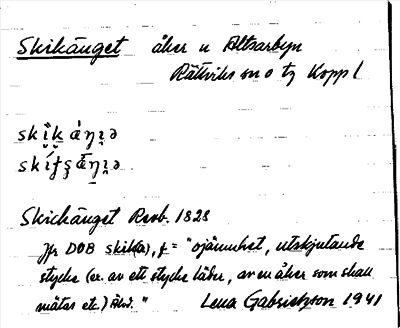 Skikänget åker n Altsarbyn
Rättviks sn o tg Kopp l
skik̬ äŋı̥ə
skífʂ ǟŋı̥ə
Skickänget Rasb. 1828
Jfr DOB skik(a), f = "ojämnhet, utskjutande
stycke (ex. av ett stycke läder, av en åker som skall
mätas etc.) Ähd."
Lena Gabrielsson 1941